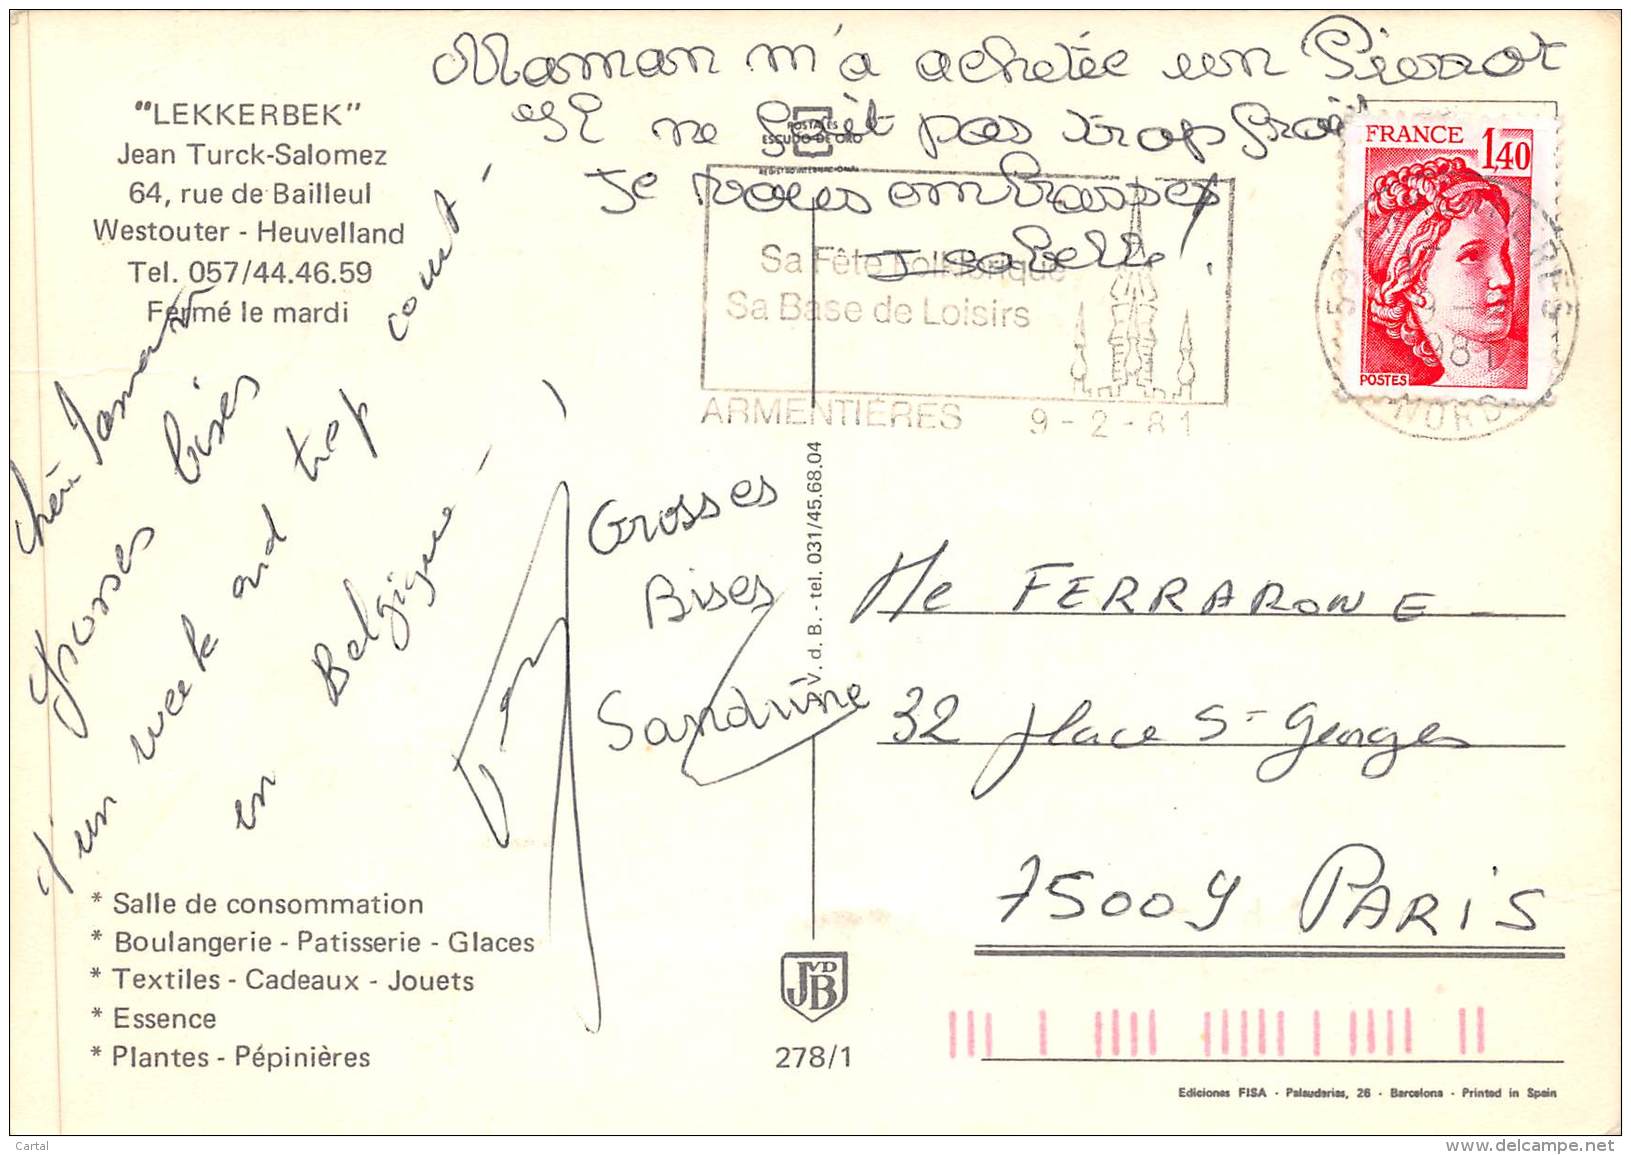 Maman m'a achetée un Pierrot
Il ne fait pas trop froid
Je vous embrasse
Isabelle
"LEKKERBEK"
Jean Turck-Salomez
64, rue de Bailleul
Westouter - Heuvelland
Tel. 057/44.46.59
Fermé le mardi
POSTALES
ESCUDO DE ORO
REGISTRO INTERNACIONAL
Sa Fête Folklorique
Sa Base de Loisirs
ARMENTIERES 9-2-81
FRANCE
1,40
POSTES
59
1981
NORD
Chère
Grosses bises
d'un week end trop court
en Belgique
Grosses
Bises
Sandrine
V. d. B. - tel. 031/45.68.04
Me FERRARONE
32 place St Georges
75009 PARIS
* Salle de consommation
* Boulangerie - Patisserie - Glaces
* Textiles - Cadeaux - Jouets
* Essence
* Plantes - Pépinières
JVDB
278/1
Ediciones FISA - Palauderias, 26 - Barcelona - Printed in Spain
Cartal
www.delcampe.net